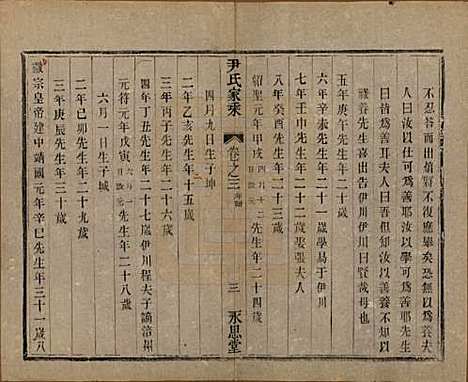 不忍答而出嘗不復應舉矣恐無以爲養夫
人曰汝以仕可爲善耶汝以此可爲善耶先生
曰皆可爲善耳夫人曰吾知汝以爲善養不知汝以
祿養先生喜出告伊川伊川曰賢哉母也
五年庚午先生年二十歲
六年辛未先生年二十一歲學易于伊川
七年壬申先生年二十二歲娶張夫人
八年癸酉先生年二十三歲
紹聖元年甲戌四月十二日改元先生年二十四歲
尹氏家乘
卷之三年譜
三
永思堂
四月九日生子坤
二年乙亥先生年二十五歲
三年丙子先生年二十六歲
四年丁丑先生年二十七歲伊川程夫子謫涪州
元符元年戊寅六月一日改元先生年二十八歲
六月一日生子城
二年己卯先生年二十九歲
三年庚辰先生年三十歲
徽宗皇帝建中靖國元年辛巳先生年三十一歲八